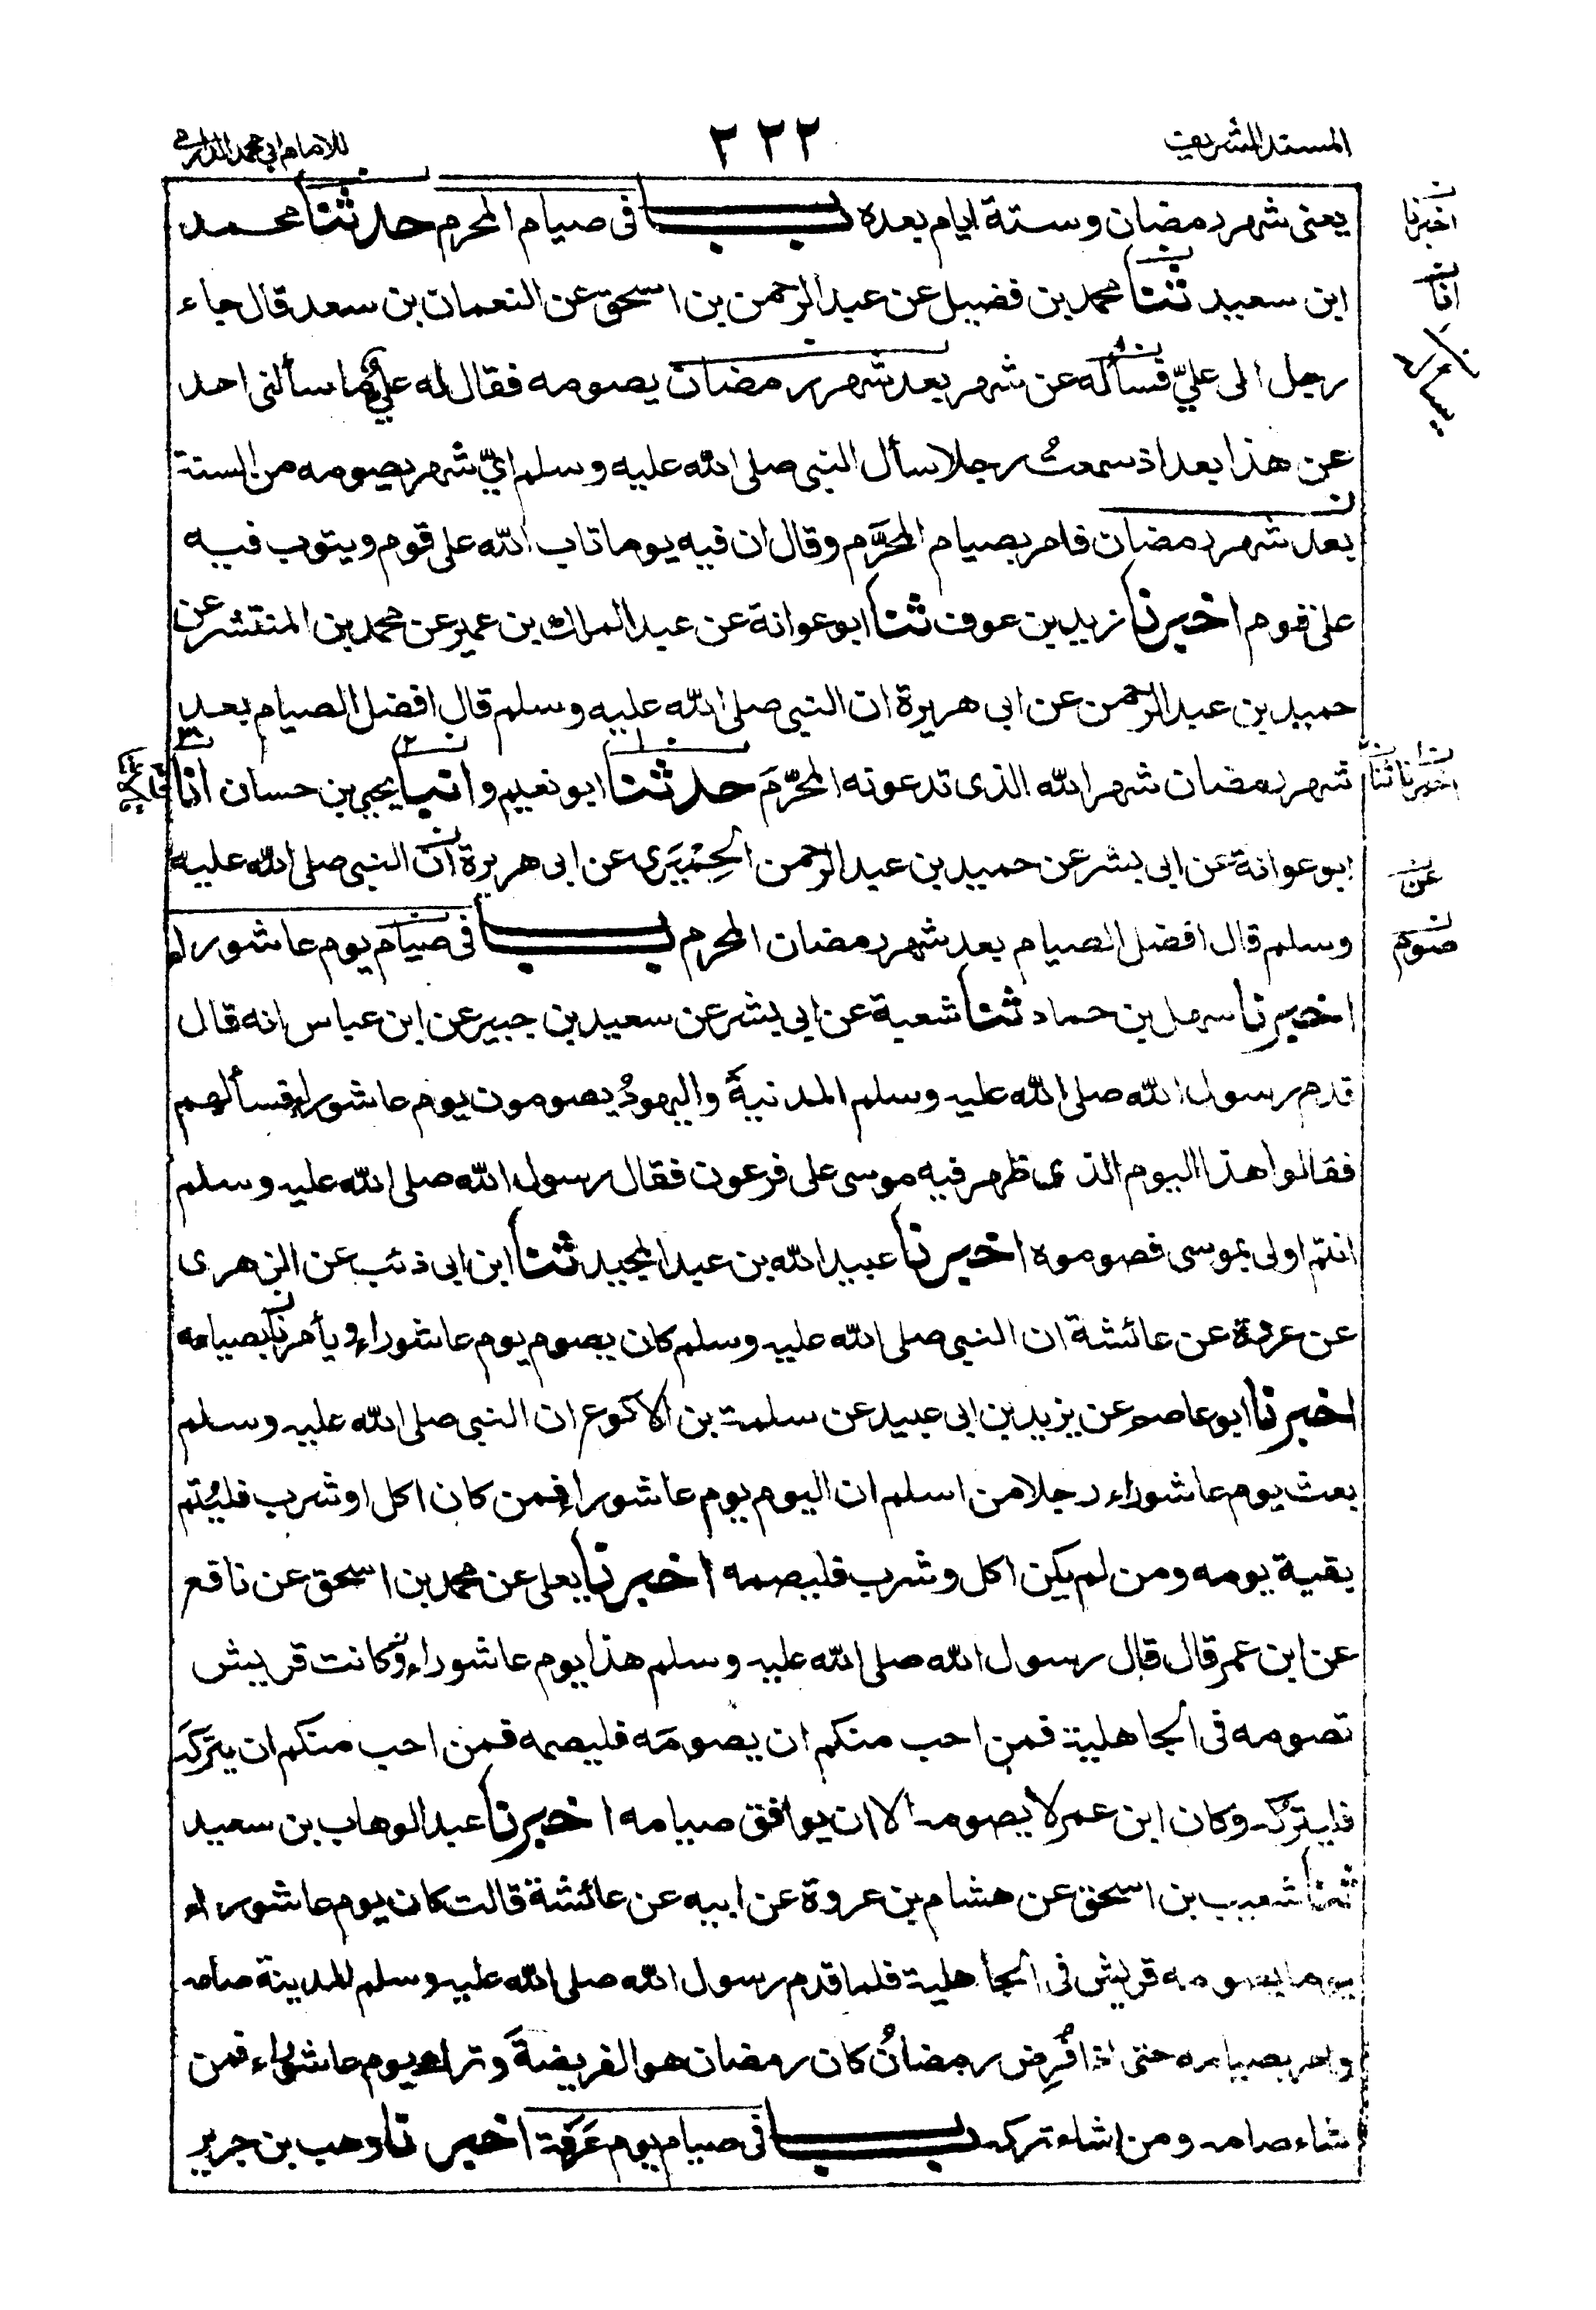 المسند الشريف
٢٢٢
للامام ابي محمد الدارمي
يعنى شهر رمضان وستة ايام بعده باب فى صيام المحرم حدثنا محمد
ابن سعيد ثنا محمد بن فضيل عن عبد الرحمن بن اسحق عن النعمان بن سعد قال جاء
رجل الى عليّ فسأله عن شهر بعد شهر رمضان يصومه فقال له عليّ ما سألنى احد
عن هذا بعد اذ سمعتُ رجلا سأل النبى صلى الله عليه وسلم ايّ شهر يصومه من السنة
بعد شهر رمضان فامر بصيام المحرَّم وقال ان فيه يوما تاب الله على قوم ويتوب فيه
على قوم اخبرنا زيد بن عوف ثنا ابو عوانة عن عبد الملك بن عمير عن محمد بن المنتشر عن
حميد بن عبد الرحمن عن ابى هريرة ان النبى صلى الله عليه وسلم قال افضل الصيام بعد
شهر رمضان شهر الله الذى تدعونه المحرّمَ حدثنا ابو نعيم وانبا يحيى بن حسان انا
ابو عوانة عن ابى بشر عن حميد بن عبد الرحمن الحِمْيَرى عن ابى هريرة ان النبى صلى الله عليه
وسلم قال افضل الصيام بعد شهر رمضان المحرم باب فى صيام يوم عاشوراء
اخبرنا سهل بن حماد ثنا شعبة عن ابى بشر عن سعيد بن جبير عن ابن عباس انه قال
قدم رسول الله صلى الله عليه وسلم المدنيةَ واليهودُ يصومون يوم عاشوراء فسألهم
فقالوا هذا اليوم الذى ظهر فيه موسى على فرعون فقال رسول الله صلى الله عليه وسلم
انتم اولى بموسى فصوموه اخبرنا عبيد الله بن عبد المجيد ثنا ابن ابى ذئب عن الزهرى
عن عروة عن عائشة ان النبى صلى الله عليه وسلم كان يصوم يوم عاشوراء ويأمرنا بصيامه
اخبرنا ابو عاصم عن يزيد بن ابى عبيد عن سلمة بن الاكوع ان النبى صلى الله عليه وسلم
بعث يوم عاشوراء رجلا من اسلم ان اليوم يوم عاشوراء فمن كان اكل او شرب فليُتم
بقية يومه ومن لم يكن اكل وشرب فليصمه اخبرنا يعلى عن محمد بن اسحق عن نافع
عن ابن عمر قال قال رسول الله صلى الله عليه وسلم هذا يوم عاشوراء وكانت قريش
تصومه فى الجاهلية فمن احب منكم ان يصومَه فليصمه فمن احب منكم ان يتركَه
فليتركه وكان ابن عمر لا يصومه الا ان يوافق صيامه اخبرنا عبد الوهاب بن سعيد
ثنا شعيب بن اسحق عن هشام بن عروة عن ابيه عن عائشة قالت كان يوم عاشوراء
يوما يصومه قريش فى الجاهلية فلما قدم رسول الله صلى الله عليه وسلم المدينة صامه
وامر بصيامه حتى اذا فُرِض رمضانُ كان رمضان هو الفريضةَ وترك يوم عاشوراء فمن
شاء صامه ومن شاء تركه باب فى صيام يوم عَرَفة اخبرنا وهب بن جرير
اخبرنا
انا
اخبرنا ثنا
عن
صوم